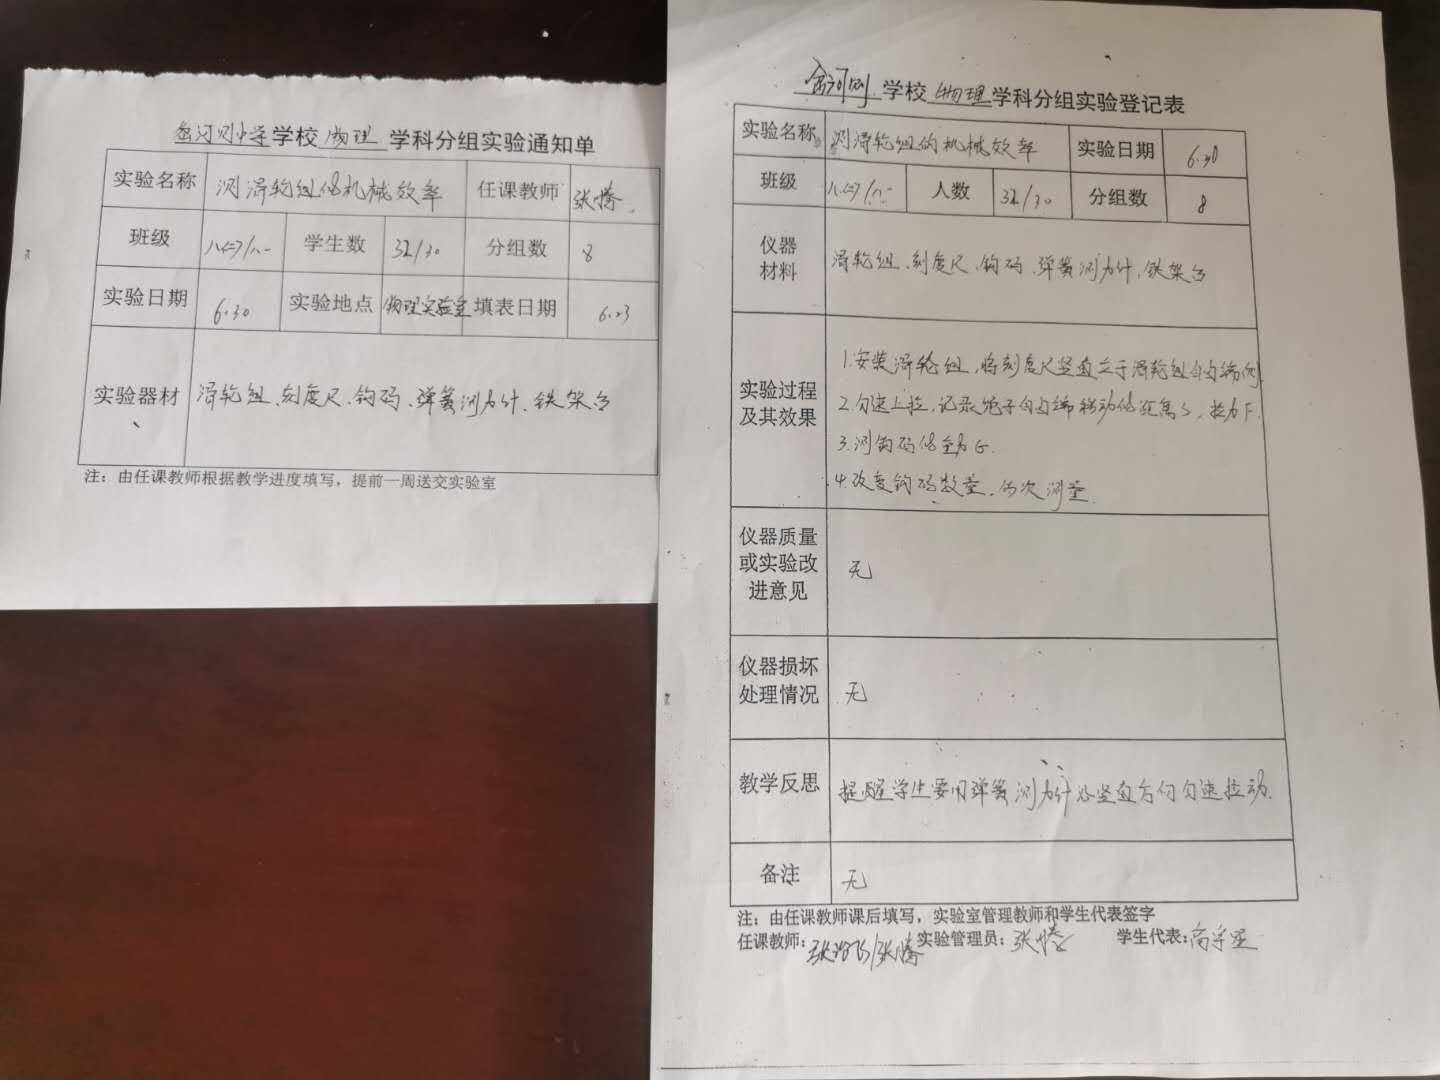 学校 物理 学科分组实验通知单
实验名称 测滑轮组的机械效率 任课教师 张
班级 八(二)/八一 学生数 32/30 分组数 8
实验日期 6.30 实验地点 物理实验室 填表日期 6.23
实验器材 滑轮组、刻度尺、钩码、弹簧测力计、铁架台
注：由任课教师根据教学进度填写，提前一周送交实验室
学校 物理 学科分组实验登记表
实验名称 测滑轮组的机械效率 实验日期 6.30
班级 八(二)/八一 人数 32/30 分组数 8
仪器
材料
滑轮组、刻度尺、钩码、弹簧测力计、铁架台
实验过程
及其效果
1.安装滑轮组，将刻度尺竖直立于滑轮组自由端侧.
2.匀速上拉，记录绳子自由端移动的距离S，拉力F.
3.测钩码的重力G.
4.改变钩码数量，多次测量.
仪器质量
或实验改
进意见
无
仪器损坏
处理情况
无
教学反思
提醒学生要用弹簧测力计沿竖直方向匀速拉动.
备注
无
注：由任课教师课后填写，实验室管理教师和学生代表签字
任课教师： 实验管理员：张 学生代表：高宇